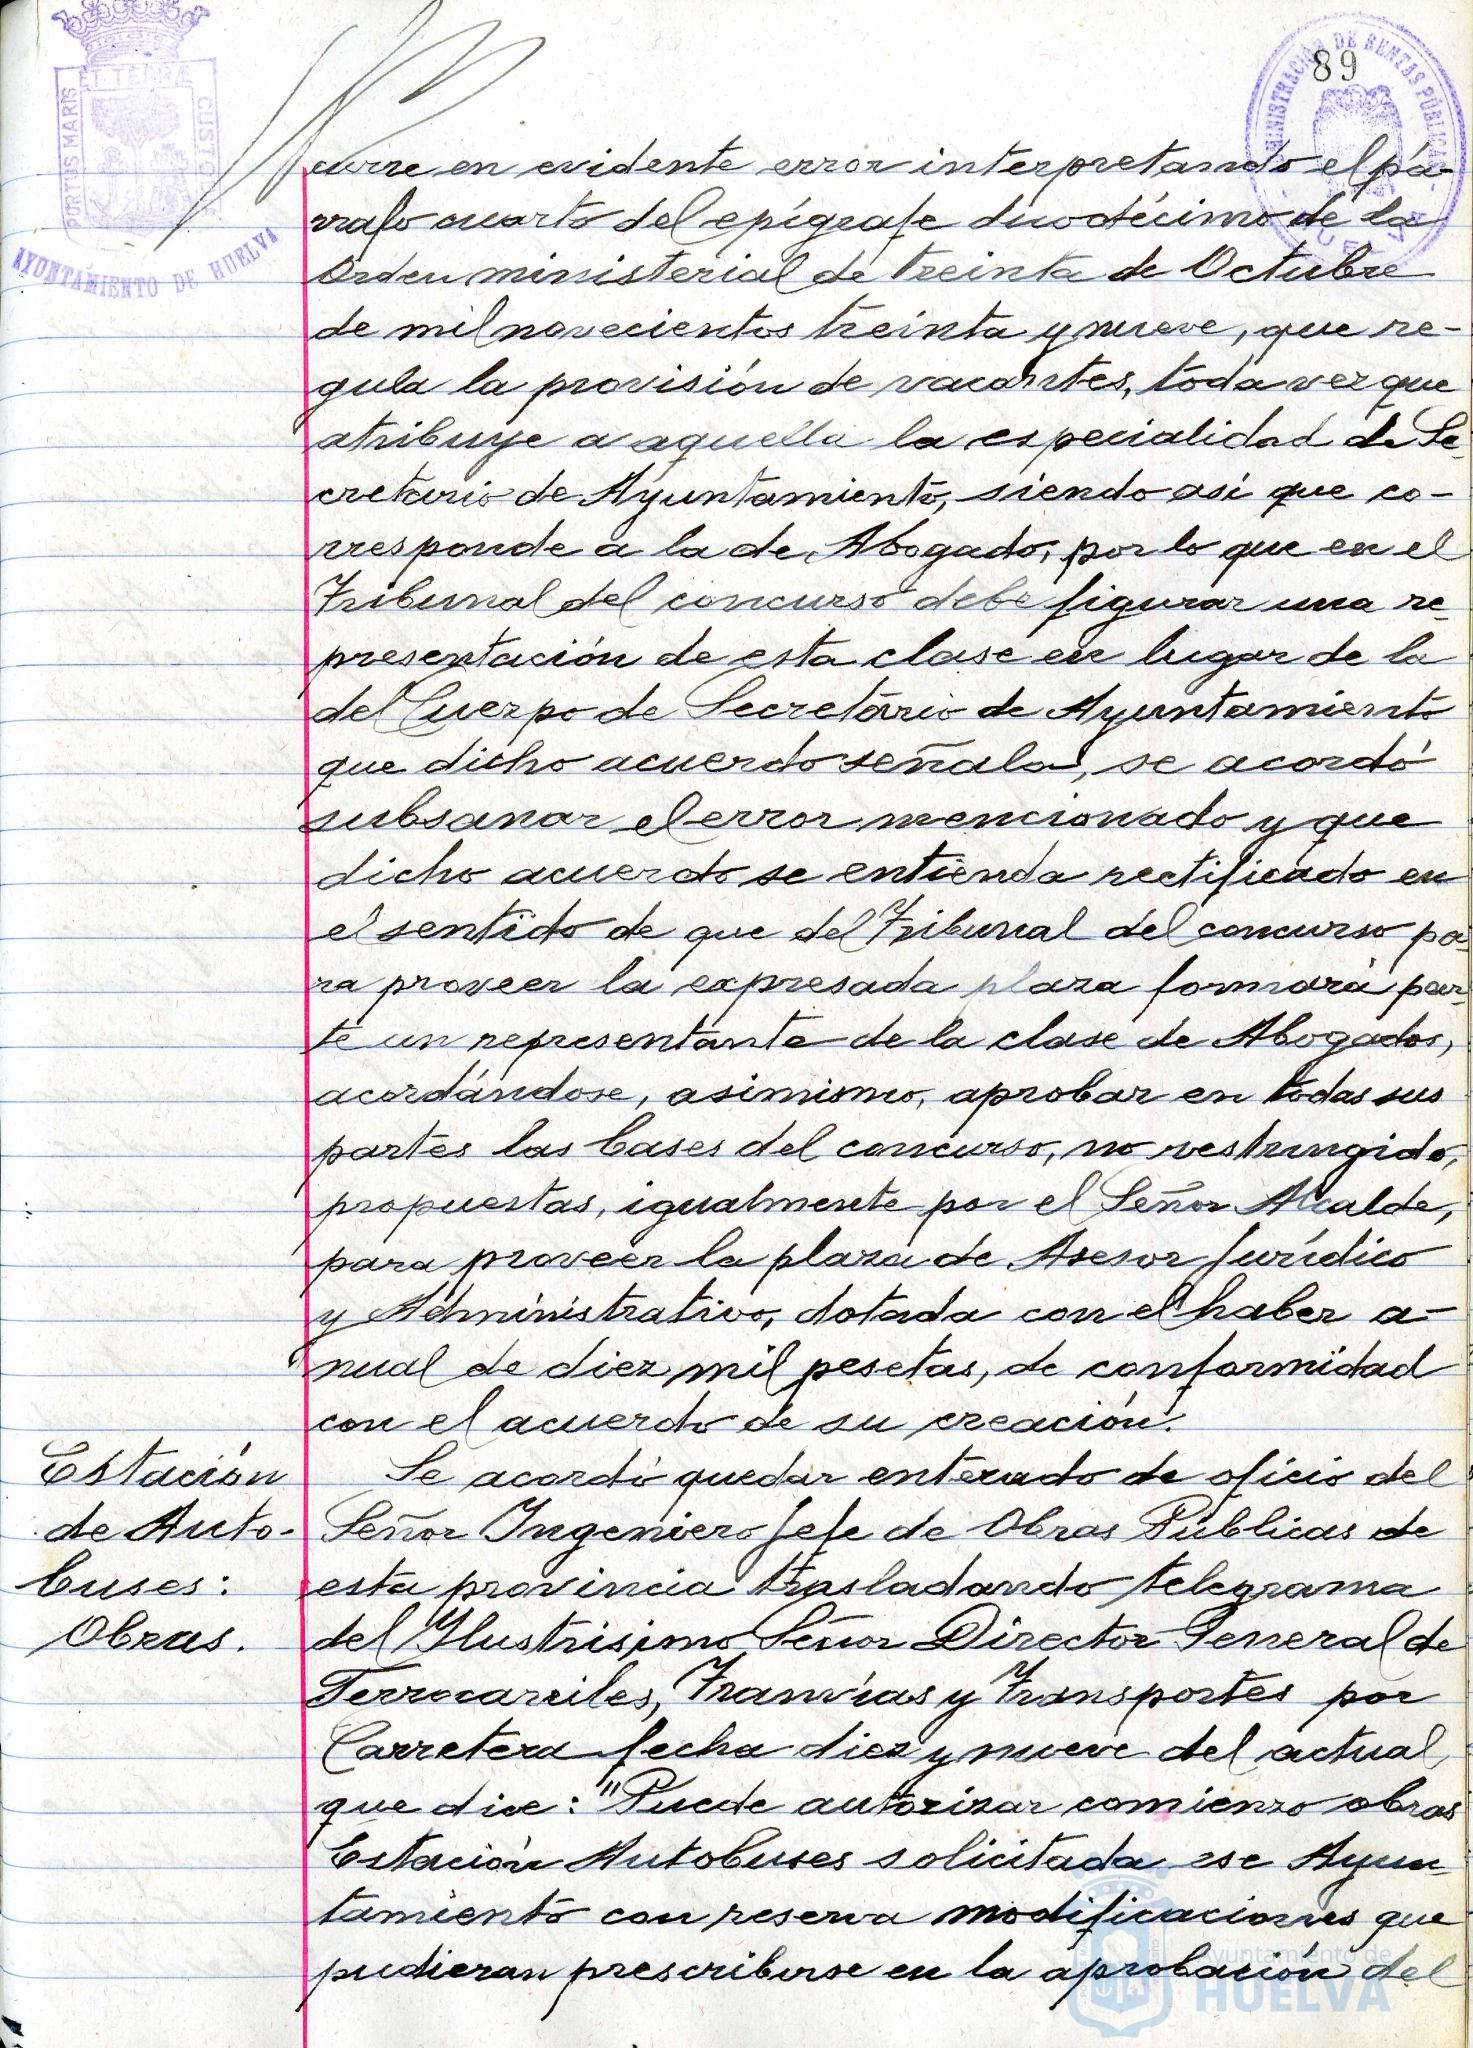 89
ET TERRÆ
PORTUS MARIS
CUSTO
AYUNTAMIENTO DE HUELVA
ADMINISTRACIÓN DE RENTAS PÚBLICAS
HUELVA
curre en evidente error interpretando el pá-
rrafo cuarto del epígrafe duodécimo de la
Orden ministerial de treinta de Octubre
de mil novecientos treinta y nueve, que re-
gula la provisión de vacantes, toda vez que
atribuye a aquella la especialidad de Se-
cretario de Ayuntamiento, siendo asi que co-
rresponde a la de Abogado, por lo que en el
Tribunal del concurso debe figurar una re-
presentación de esta clase en lugar de la
del Cuerpo de Secretario de Ayuntamiento
que dicho acuerdo señala, se acordó
subsanar el error mencionado y que
dicho acuerdo se entienda rectificado en
el sentido de que del Tribunal del concurso pa-
ra proveer la expresada plaza formará par-
te un representante de la clase de Abogados,
acordándose, asimismo, aprobar en todas sus
partes las bases del concurso, no restringido,
propuestas, igualmente por el Señor Alcalde,
para proveer la plaza de Asesor Jurídico
y Administrativo, dotada con el haber a-
nual de diez mil pesetas, de conformidad
con el acuerdo de su creación.
Estación
de Auto-
buses:
Obras.
Se acordó quedar enterado de oficio del
Señor Ingeniero Jefe de Obras Públicas de
esta provincia trasladando telegrama
del Ilustrisimo Señor Director General de
Ferrocarriles, Tranvías y Transportes por
Carretera fecha diez y nueve del actual
que dice: "Puede autorizar comienzo obras
Estación Autobuses solicitada ese Ayun-
tamiento con reserva modificaciones que
pudieran prescribirse en la aprobación del
Ayuntamiento de
HUELVA